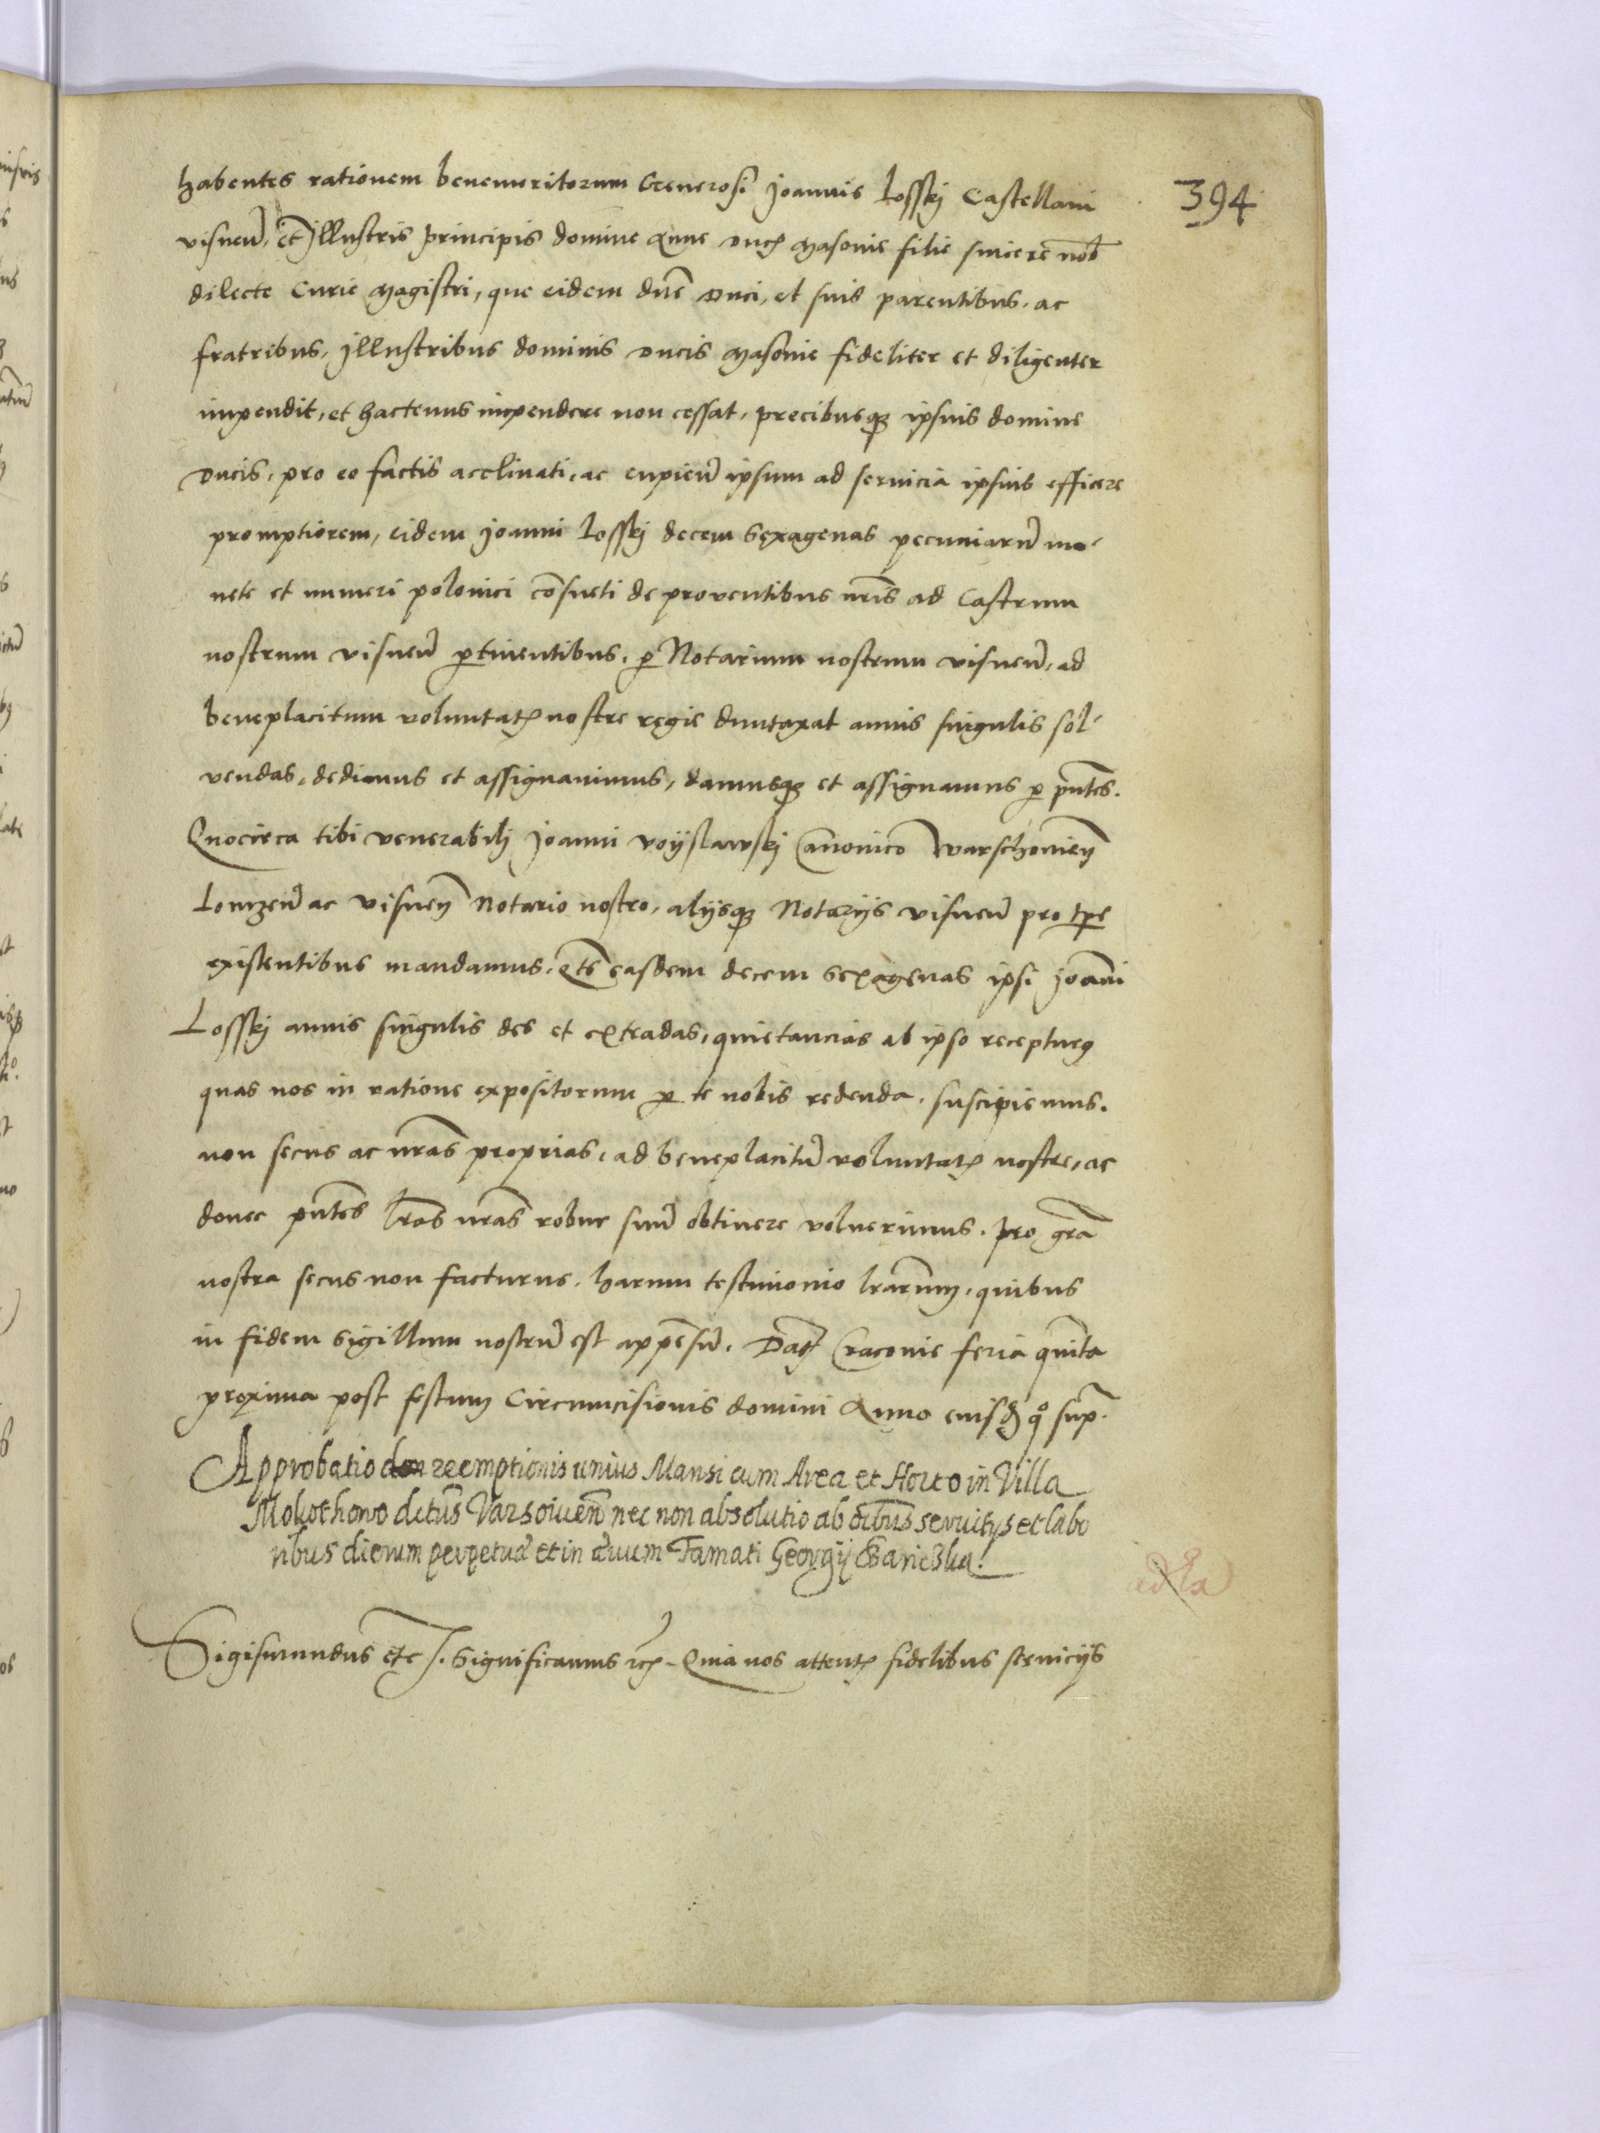 394
habentes rationem benemeritorum Generosi Joannis Losskj Castellani
visneñ, et Illustris principis domine Anne ducis Masovie filie sincere nob
dilecte Curie Magistri, que eidem dñe Duci, et suis parentibus, ac
fratribus, Illustribus dominis ducis Masovie fideliter et diligenter
impendit, et hactenus impendere non cessat, precibusqȝ ipsius domine
Ducis, pro eo factis acclinati, ac cupieñ ipsum ad servicia ipsius efficere
promptiorem, eidem Joanni Losskj decem sexagenas pecuniarū mo-
nete et numeri polonici cōsueti de proventibus nris ad Castrum
nostrum visneñ ꝑtinentibus, ꝑ Notarium nostrum visneñ, ad
beneplacitum voluntatꝭ nostre regie duntaxat annis singulis sol-
vendas, dedimus et assignavimus, damusqȝ et assignamus ꝑ pñtes.
Quocirca tibi venerabili Joanni voyslawskj Canonico Warschovieñ
Lomzeñ ac visneñ Notario nostro, alijsqȝ Notarijs visneñ pro tpe
existentibus mandamus, qtē easdem decem sexagenas ipsi Joāni
Losskj annis singulis des et extradas, quietancias ab ipso recepturꝰ
quas nos in ratione expositorum ꝑ te nobis redenda, suscipiemus.
non secus ac nras proprias, ad beneplacitū voluntatꝭ nostre, ac
donec pñtes lras nras robur suū obtinere voluerimus. pro grā
nostra secus non facturus, harum testimonio lrarum, quibus
in fidem Sigillum nostrū est appēsū. Datꝭ Cracovie feria quīta
proxima post festum Circumcisionis domini Anno eiusdꝫ qº supꝭ
Approbatio reemptionis unius Mansi cum Area et Horto in Villa
Mokothowo dictūs Varsovieñ nec non absolutio ab oībus servitijs et labo
ribus dierum perpetua et in ævum Famati Georgij Bariczka.
Sigismundus etc. Significamus etc. Quia nos attentꝭ fidelibus servicijs